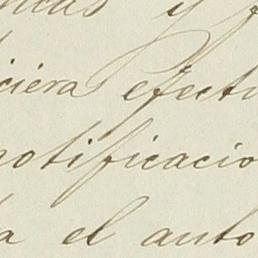 y
iciera efectu
notificacio
a el auto